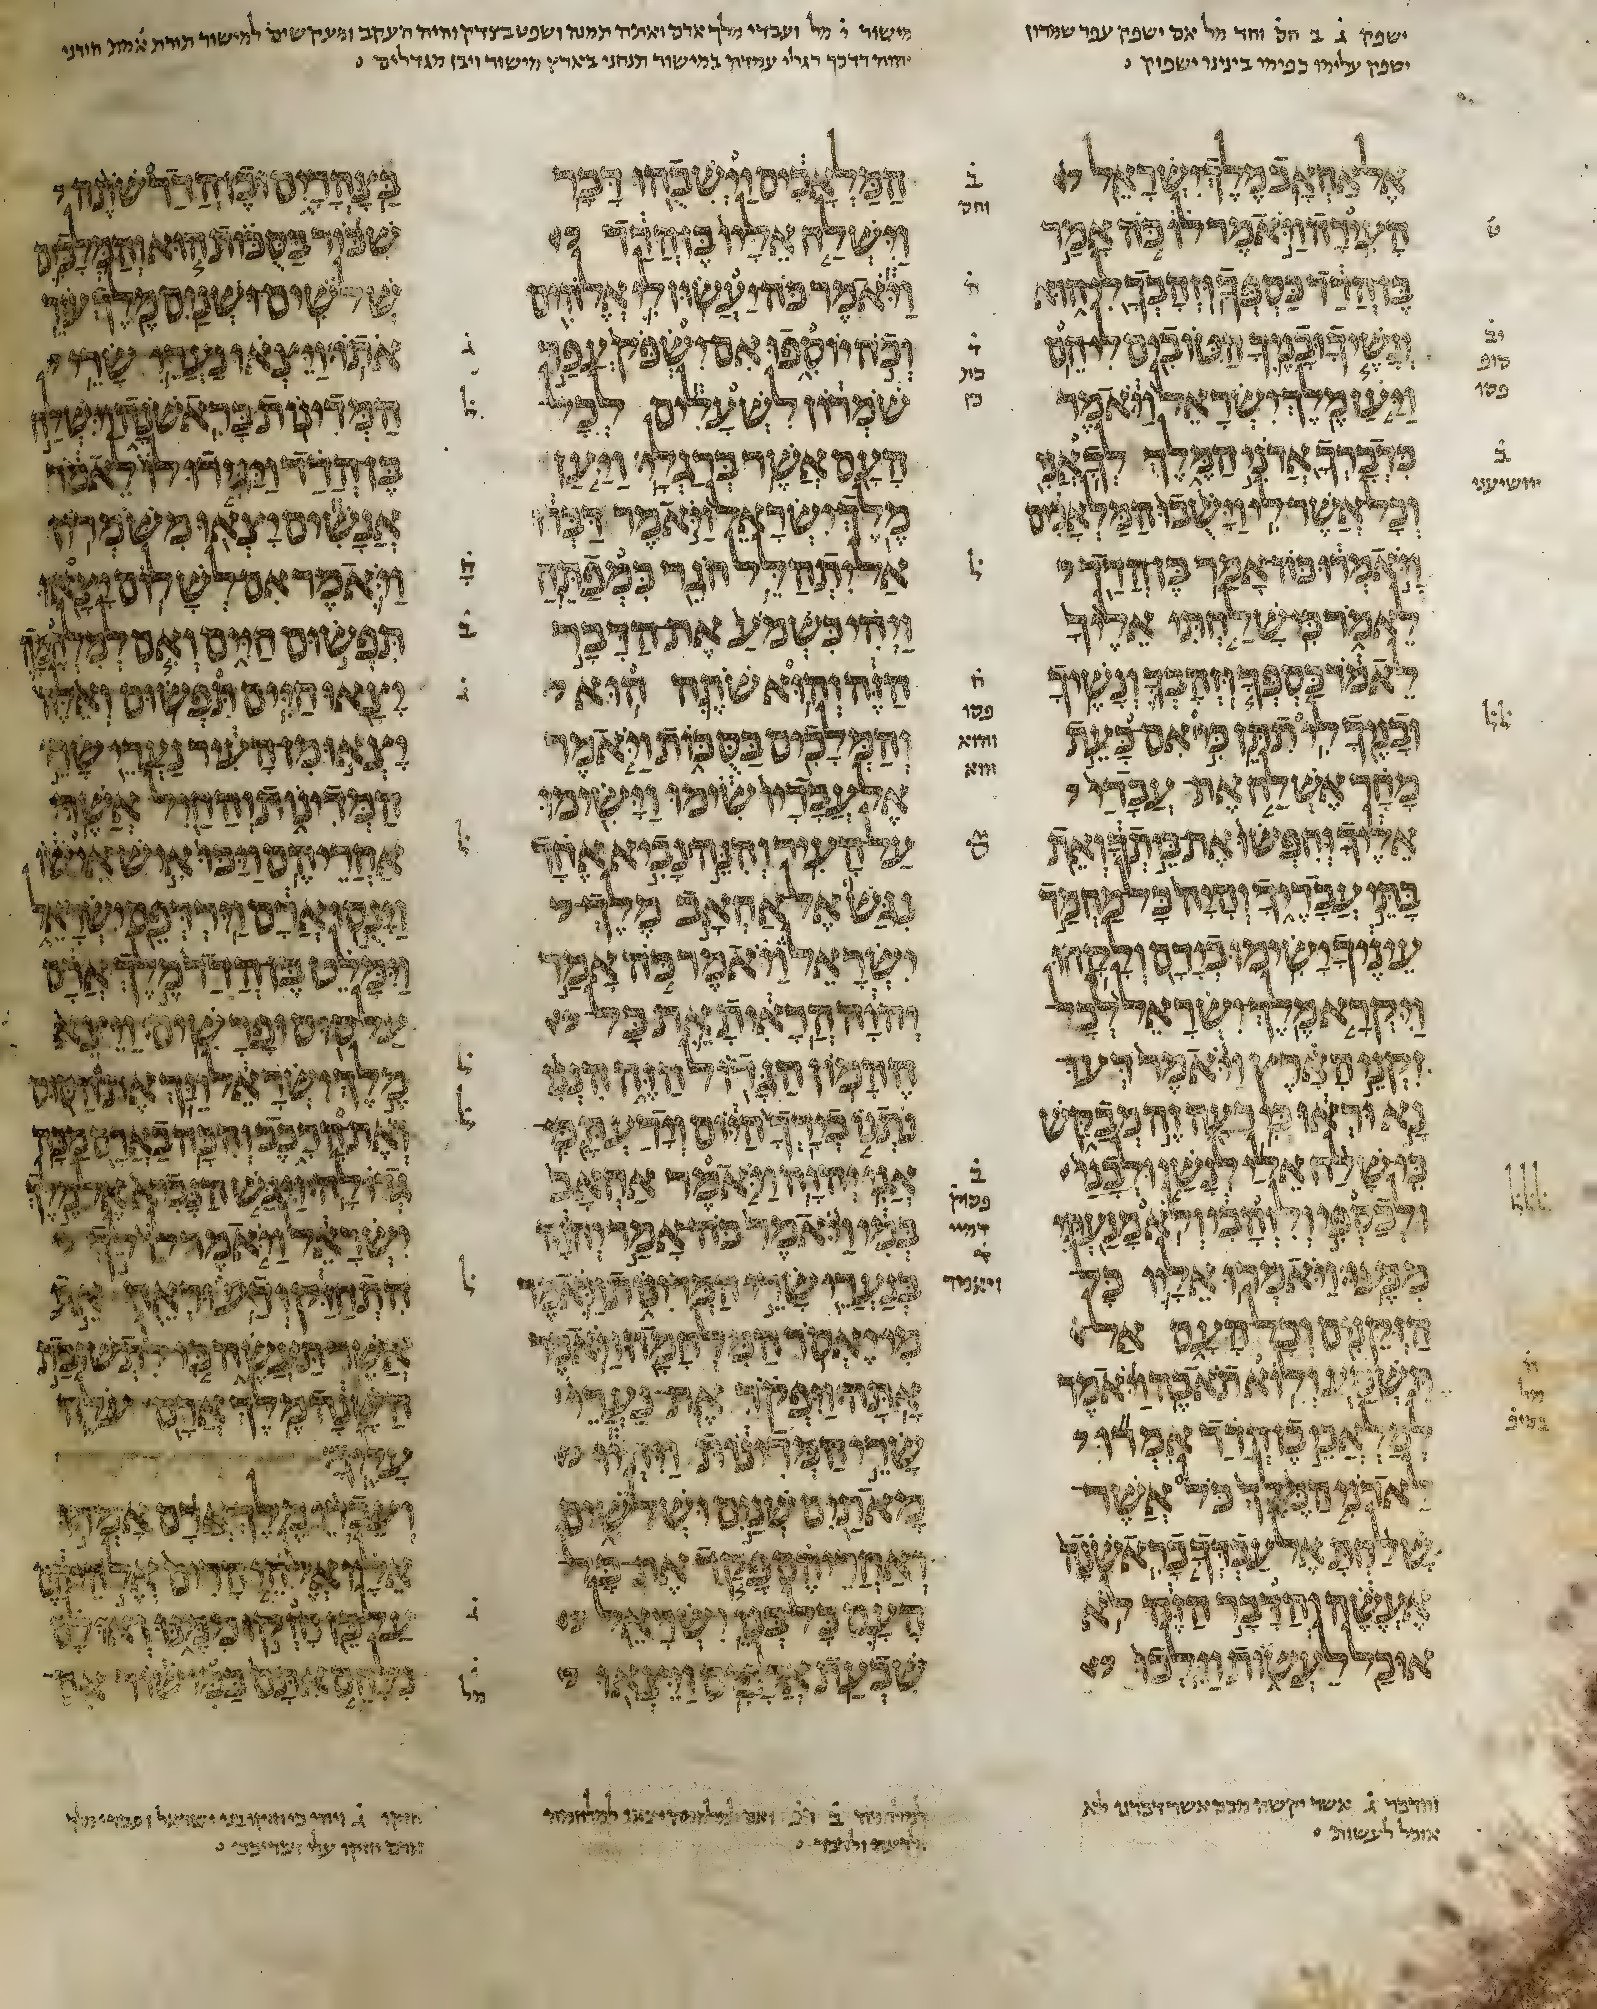 ישפק ג ב חס וחד מל אם ישפק עפר שמרון
יספק עלימו כפימו בינינו ישפוק
מישור י מל ועבדי מלך ארם ואתה תמנה ושפט בצדק והיה העקב ומעקשים למישור תורת אמת הורני
יהוה דרכך רגלי עמדה במישור תנחני בארץ מישור ויבן מגדלים
אל אחאב מלך ישראל
העירה ויאמר לו כה אמר
בן הדד כספך וזהבך לי הוא
ונשיך ובניך הטובים לי הם
ויען מלך ישראל ויאמר
כדברך אדני המלך לך אני
וכל אשר לי וישבו המלאכים
ויאמרו כה אמר בן הדד
לאמר כי שלחתי אליך
לאמר כספך וזהבך ונשיך
ובניך לי תתן כי אם כעת
מחר אשלח את עבדי
אליך וחפשו את ביתך ואת
בתי עבדיך והיה כל מחמד
עיניך ישימו בידם ולקחו
ויקרא מלך ישראל לכל
זקני הארץ ויאמר דעו
נא וראו כי רעה זה מבקש
כי שלח אלי לנשי ולבני
ולכספי ולזהבי ולא מנעתי
ממנו ויאמרו אליו כל
הזקנים וכל העם אל
תשמע ולוא תאבה ויאמר
למלאכי בן הדד אמרו
לאדני המלך כל אשר
שלחת אל עבדך בראשנה
אעשה והדבר הזה לא
אוכל לעשות וילכו
המלאכים וישבהו דבר
וישלח אליו בן הדד
ויאמר כה יעשון לי אלהים
וכה יוספו אם ישפק עפר
שמרון לשעלים לכל
העם אשר ברגלי ויען
מלך ישראל ויאמר דברו
אל יתהלל חגר כמפתח
ויהי כשמע את הדבר
הזה והוא שתה הוא
והמלכים בסכות ויאמר
אל עבדיו שימו וישימו
על העיר והנה נביא אחד
נגש אל אחאב מלך
ישראל ויאמר כה אמר
יהוה הראית את כל
ההמון הגדול הזה הנני
נתנו בידך היום וידעת כי
אני יהוה ויאמר אחאב
במי ויאמר כה אמר יהוה
בנערי שרי המדינות ויאמר
מי יאסר המלחמה ויאמר
אתה ויפקד את נערי
שרי המדינות ויהיו
מאתים שנים ושלשים
ואחריהם פקד את כל
העם כל בני ישראל
שבעת אלפים ויצאו
בצהרים ובן הדד שתה
שכור בסכות הוא והמלכים
שלשים ושנים מלך עזר
אתו ויצאו נערי שרי
המדינות בראשנה וישלח
בן הדד ויגידו לו לאמר
אנשים יצאו משמרון
ויאמר אם לשלום יצאו
תפשום חיים ואם למלחמה
יצאו חיים תפשום ואלה
יצאו מן העיר נערי שרי
המדינות והחיל אשר
אחריהם ויכו איש אישו
וינסו ארם וירדפם ישראל
וימלט בן הדד מלך ארם
על סוס ופרשים ויצא
מלך ישראל ויך את הסוס
ואת הרכב והכה בארם מכה
גדולה ויגש הנביא אל מלך
ישראל ויאמר לו לך
התחזק ודע וראה את
אשר תעשה כי לתשובת
השנה מלך ארם עלה
עליך
ועבדי מלך ארם אמרו
אליו אלהי הרים אלהיהם
על כן חזקו ממנו ואולם
נלחם אתם במישור אם
והדבר ג אשר יקשה מכם אשר דברנו לא
אוכל לעשות
חזקו ג ויהי כי חזקו בני ישראל ועבדי מלך
ארם חזקו עלי דבריכם